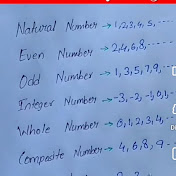 Natural Number → 1,2,3,4,5,....
Even Number → 2,4,6,8,....
Odd Number → 1,3,5,7,9,...
Integer Number → -3,-2,-1,0,1,-
Whole Number → 0,1,2,3,4,--
Composite Number → 4,6,8,9--